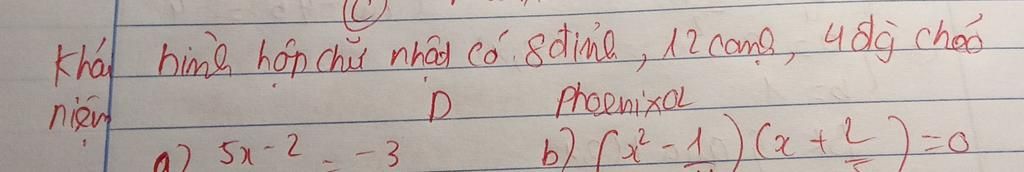 C
Khái hình hộp chữ nhật có 8 đỉnh, 12 cạnh, 4 đg chéo
niệm D Phoenixal
a) 5x-2 = -3 b) (x² - 1)(x + 2) = 0